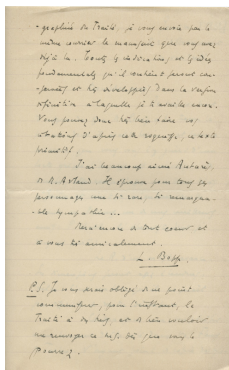 -graphié du Traité, je vous envoie par le
même courrier le manuscrit que vous avez
déjà lu. Toutes les indications et les idées
fondamentales qu'il contient seront con-
et très développées dans la version
définitive à laquelle je travaille encore.
Vous pouvez donc très bien faire vos
d'après cette, ce texte
primitif.
J'ai beaucoup aimé Antarès,
de M. Arland. Il éprouve pour tous ses
personnages une si vraie, si
-ble sympathie...
Bien à vous de tout cœur et
à vous très amicalement.
L. Bopp.
P.S. Je vous serais obligé de ne point
communiquer, pour l'instant, le
Traité à, et de bien vouloir
me renvoyer ce dès que vous le
pourrez.